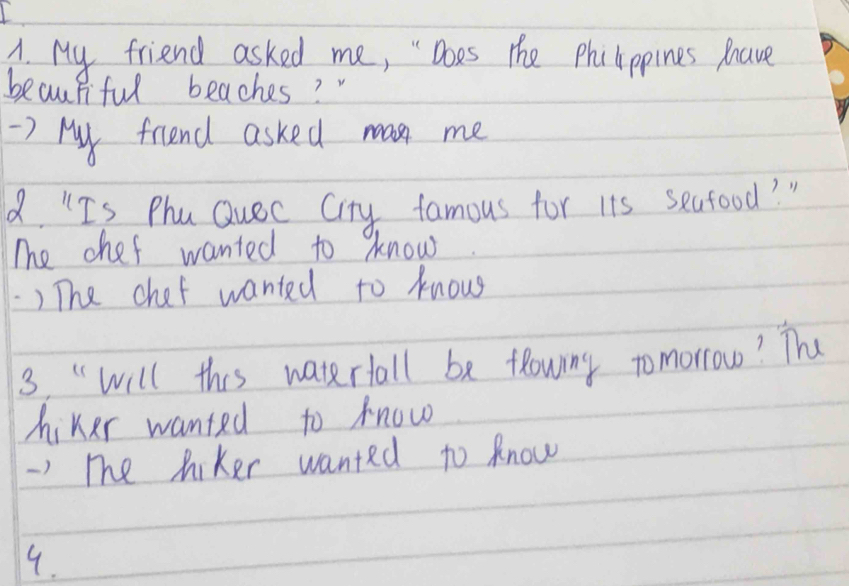 I
1. My friend asked me, "Does the Philippines have
beautiful beaches?"
-> My friend asked me
2. "Is Phu Quoc City famous for its seafood?"
The chef wanted to know.
-> The chef wanted to know
3. "Will this waterfall be flowing tomorrow? The
hiker wanted to know
-> The hiker wanted to know
4.